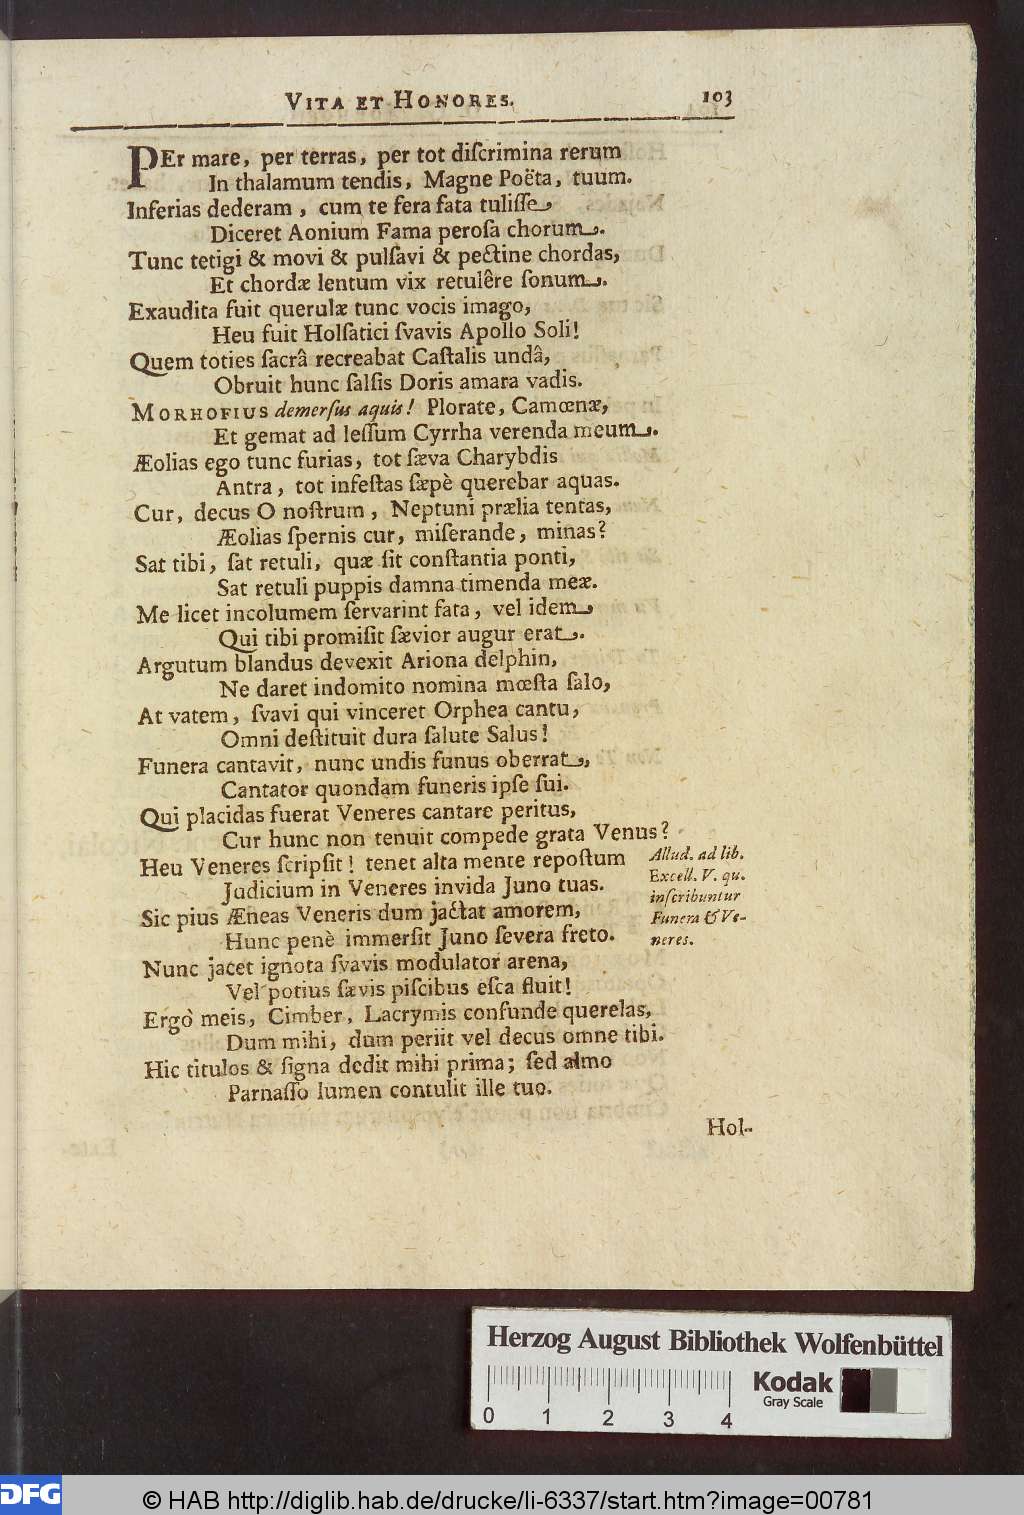 VITA ET HONORES. 103
PEr mare, per terras, per tot diſcrimina rerum
In thalamum tendis, Magne Poëta, tuum.
Inferias dederam, cum te fera fata tuliſſe,
Diceret Aonium Fama peroſa chorum.
Tunc tetigi & movi & pulſavi & pectine chordas,
Et chordæ lentum vix retulêre ſonum.
Exaudita fuit querulæ tunc vocis imago,
Heu fuit Holſatici ſvavis Apollo Soli!
Quem toties ſacrâ recreabat Caſtalis undâ,
Obruit hunc ſalſis Doris amara vadis.
MORHOFIUS demerſus aquis! Plorate, Camœnæ,
Et gemat ad leſſum Cyrrha verenda meum.
Æolias ego tunc furias, tot ſæva Charybdis
Antra, tot infeſtas ſæpè querebar aquas.
Cur, decus O noſtrum, Neptuni prælia tentas,
Æolias ſpernis cur, miſerande, minas?
Sat tibi, ſat retuli, quæ ſit conſtantia ponti,
Sat retuli puppis damna timenda meæ.
Me licet incolumem ſervarint fata, vel idem
Qui tibi promiſit ſævior augur erat.
Argutum blandus devexit Ariona delphin,
Ne daret indomito nomina mœſta ſalo,
At vatem, ſvavi qui vinceret Orphea cantu,
Omni deſtituit dura ſalute Salus!
Funera cantavit, nunc undis funus oberrat,
Cantator quondam funeris ipſe ſui.
Qui placidas fuerat Veneres cantare peritus,
Cur hunc non tenuit compede grata Venus?
Heu Veneres ſcripſit! tenet alta mente repoſtum
Judicium in Veneres invida Juno tuas.
Sic pius Æneas Veneris dum jactat amorem,
Hunc penè immerſit Juno ſevera freto.
Allud. ad lib.
Excell. V. qu.
inſcribuntur
Funera & Ve-
neres.
Nunc jacet ignota ſvavis modulator arena,
Vel potius ſævis piſcibus eſca fluit!
Ergò meis, Cimber, Lacrymis confunde querelas,
Dum mihi, dum periit vel decus omne tibi.
Hic titulos & ſigna dedit mihi prima; ſed almo
Parnaſſo lumen contulit ille tuo.
Hol-
Herzog August Bibliothek Wolfenbüttel
Kodak
Gray Scale
0 1 2 3 4
DFG
© HAB http://diglib.hab.de/drucke/li-6337/start.htm?image=00781